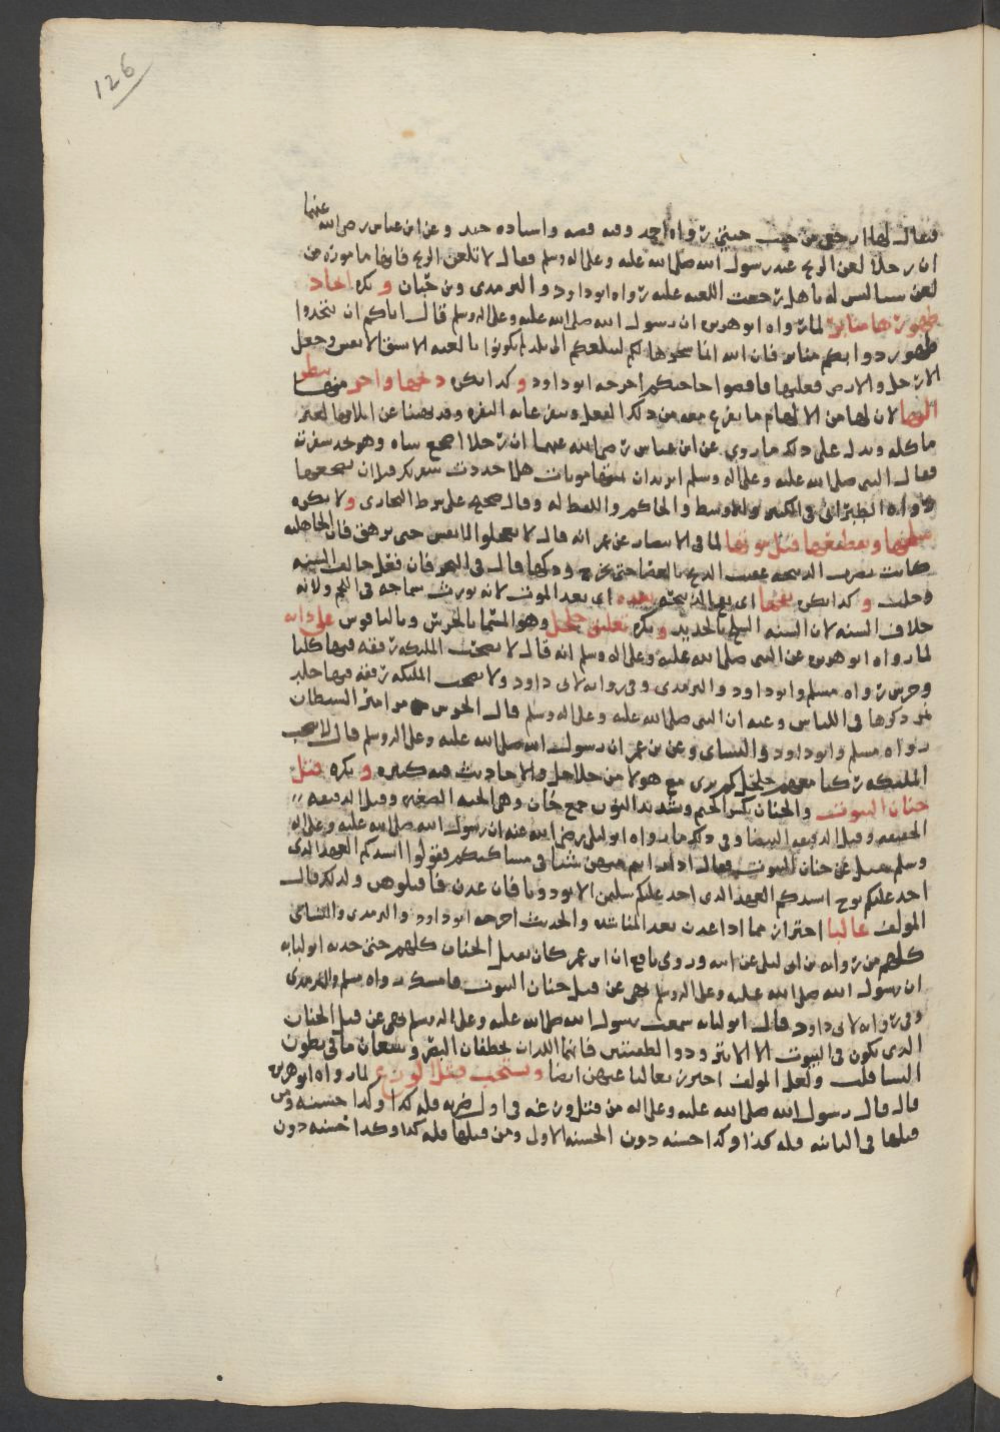 126
فقال لها ارجعي من حيث جيتي رواه احمد وفيه قصه واسناده جيد وعن ابن عباس رضي الله عنهما
ان رجلا لعن الريح عند رسول الله صلى الله عليه وعلى اله وسلم فقال لا تلعن الريح فانها مامورة من
لعن شيا ليس له باهل رجعت اللعنه عليه رواه ابو داود والترمذي وبن حبان و يكره اتخاذ
ظهورها منابر لما رواه ابو هريرة ان رسول الله صلى الله عليه وعلى اله وسلم قال اياكم ان تتخذوا
ظهور دوابكم منابر فان الله انما سخرها لكم لتبلغكم الى بلد لم تكونوا بالغيه الا بشق الانفس وجعل
لكم الارض فعليها فاقضوا حاجتكم اخرجه ابو داود و كذا يكره ذبحها واخر تنظر
اليها لان لها من الالهام ما تفزع معه من ذلك الفعل
ماكله ويدل على ذلك ما روي عن ابن عباس رضي الله عنهما ان رجلا اضجع شاه وهو يحد شفرته
فقال النبي صلى الله عليه وعلى اله وسلم اتريد ان تميتها موتات هلا حددت شفرتك قبل ان تضجعها
رواه الطبراني في الكبير والاوسط والحاكم واللفظ له وقال صحيح على شرط البخاري و لا يكره
لما في الانتصار عن عمر انه قال لا تعجلوا الانفس حتى تزهق فان الجاهلية
كانت تضرب الذبيحه عقيب الذبح بالعصا حتى تخرج روحها قال في البحر فان فعل خالف السنه
وحلت و كذا يكره نفخها اي نفخ الذبيحه بعده اي بعد الموت لانه يورث سماجه في اللحم ولانه
خلاف السنه لان السنه السلخ بالحديد و يكره تعليق جلجل وهو المسما بالجرس وبالناقوس على دابه
لما رواه ابو هريره عن النبي صلى الله عليه وعلى اله وسلم انه قال لا تصحب المليكه رفقه فيها كلب
وجرس رواه مسلم وابو داود والترمذي وفي روايه لابي داود ولا تصحب المليكه رفقه فيها جلد
نمر ذكرها في اللباس وعنه ان النبي صلى الله عليه وعلى اله وسلم قال الجرس من مزامير الشيطان
رواه مسلم وابو داود والنساي وعن بن عمر ان رسول الله صلى الله عليه وعلى اله وسلم قال لا تصحب
المليكه ركبا معهم جلجل كم ترى مع هولا من جلاجل والاحاديث فيه كثيره و يكره قتل
جنان البيوت والجنان بكسر الجيم وتشديد النون جمع جان وهي الحيه الصغيره وقيل الدقيقه
الخفيفه وقيل الدقيقه البيضا وفي ذلك ما رواه ابو ليلى رضي الله عنه ان رسول الله صلى الله عليه وعلى اله
وسلم سيل عن جنان البيوت فقال اذا رايتم منهن شيا في مساكنكم فقولوا انشدكم العهد الذي
اخذ عليكم نوح انشدكم العهد الذي اخذ عليكم سليمن الا توذونا فان عدن فاقتلوهن ولذلك قال
المولف غالبا احتراز مما اذا عدن بعد المناشده والحديث اخرجه ابو داود والترمذي والنساي
كلهم من روايه بن ابي ليلى عن ابيه وروى نافع ان ابن عمر كان يقتل الحيات كلهن حتى حدثه ابو لبابه
ان رسول الله صلى الله عليه وعلى اله وسلم نهى عن قتل جنان البيوت فامسك رواه مسلم والترمذي
وفي روايه لابي داود قال ابو لبابه سمعت رسول الله صلى الله عليه وعلى اله وسلم نهى عن قتل الجنان
الذي تكون في البيوت الا الابتر وذو الطفيتين فانهما اللذان يخطفان البصر ويتبعان ما في بطون
النسا قلت ولعل المولف احترز بغالبا عنهن ايضا و يستحب قتل الوزغ لما رواه ابو هريره
قال قال رسول الله صلى الله عليه وعلى اله من قتل وزغه في اول ضربه فله كذا وكذا حسنه ومن
قتلها في الثانيه فله كذا وكذا حسنه دون الحسنه الاولى ومن قتلها فله كذا وكذا حسنه دون